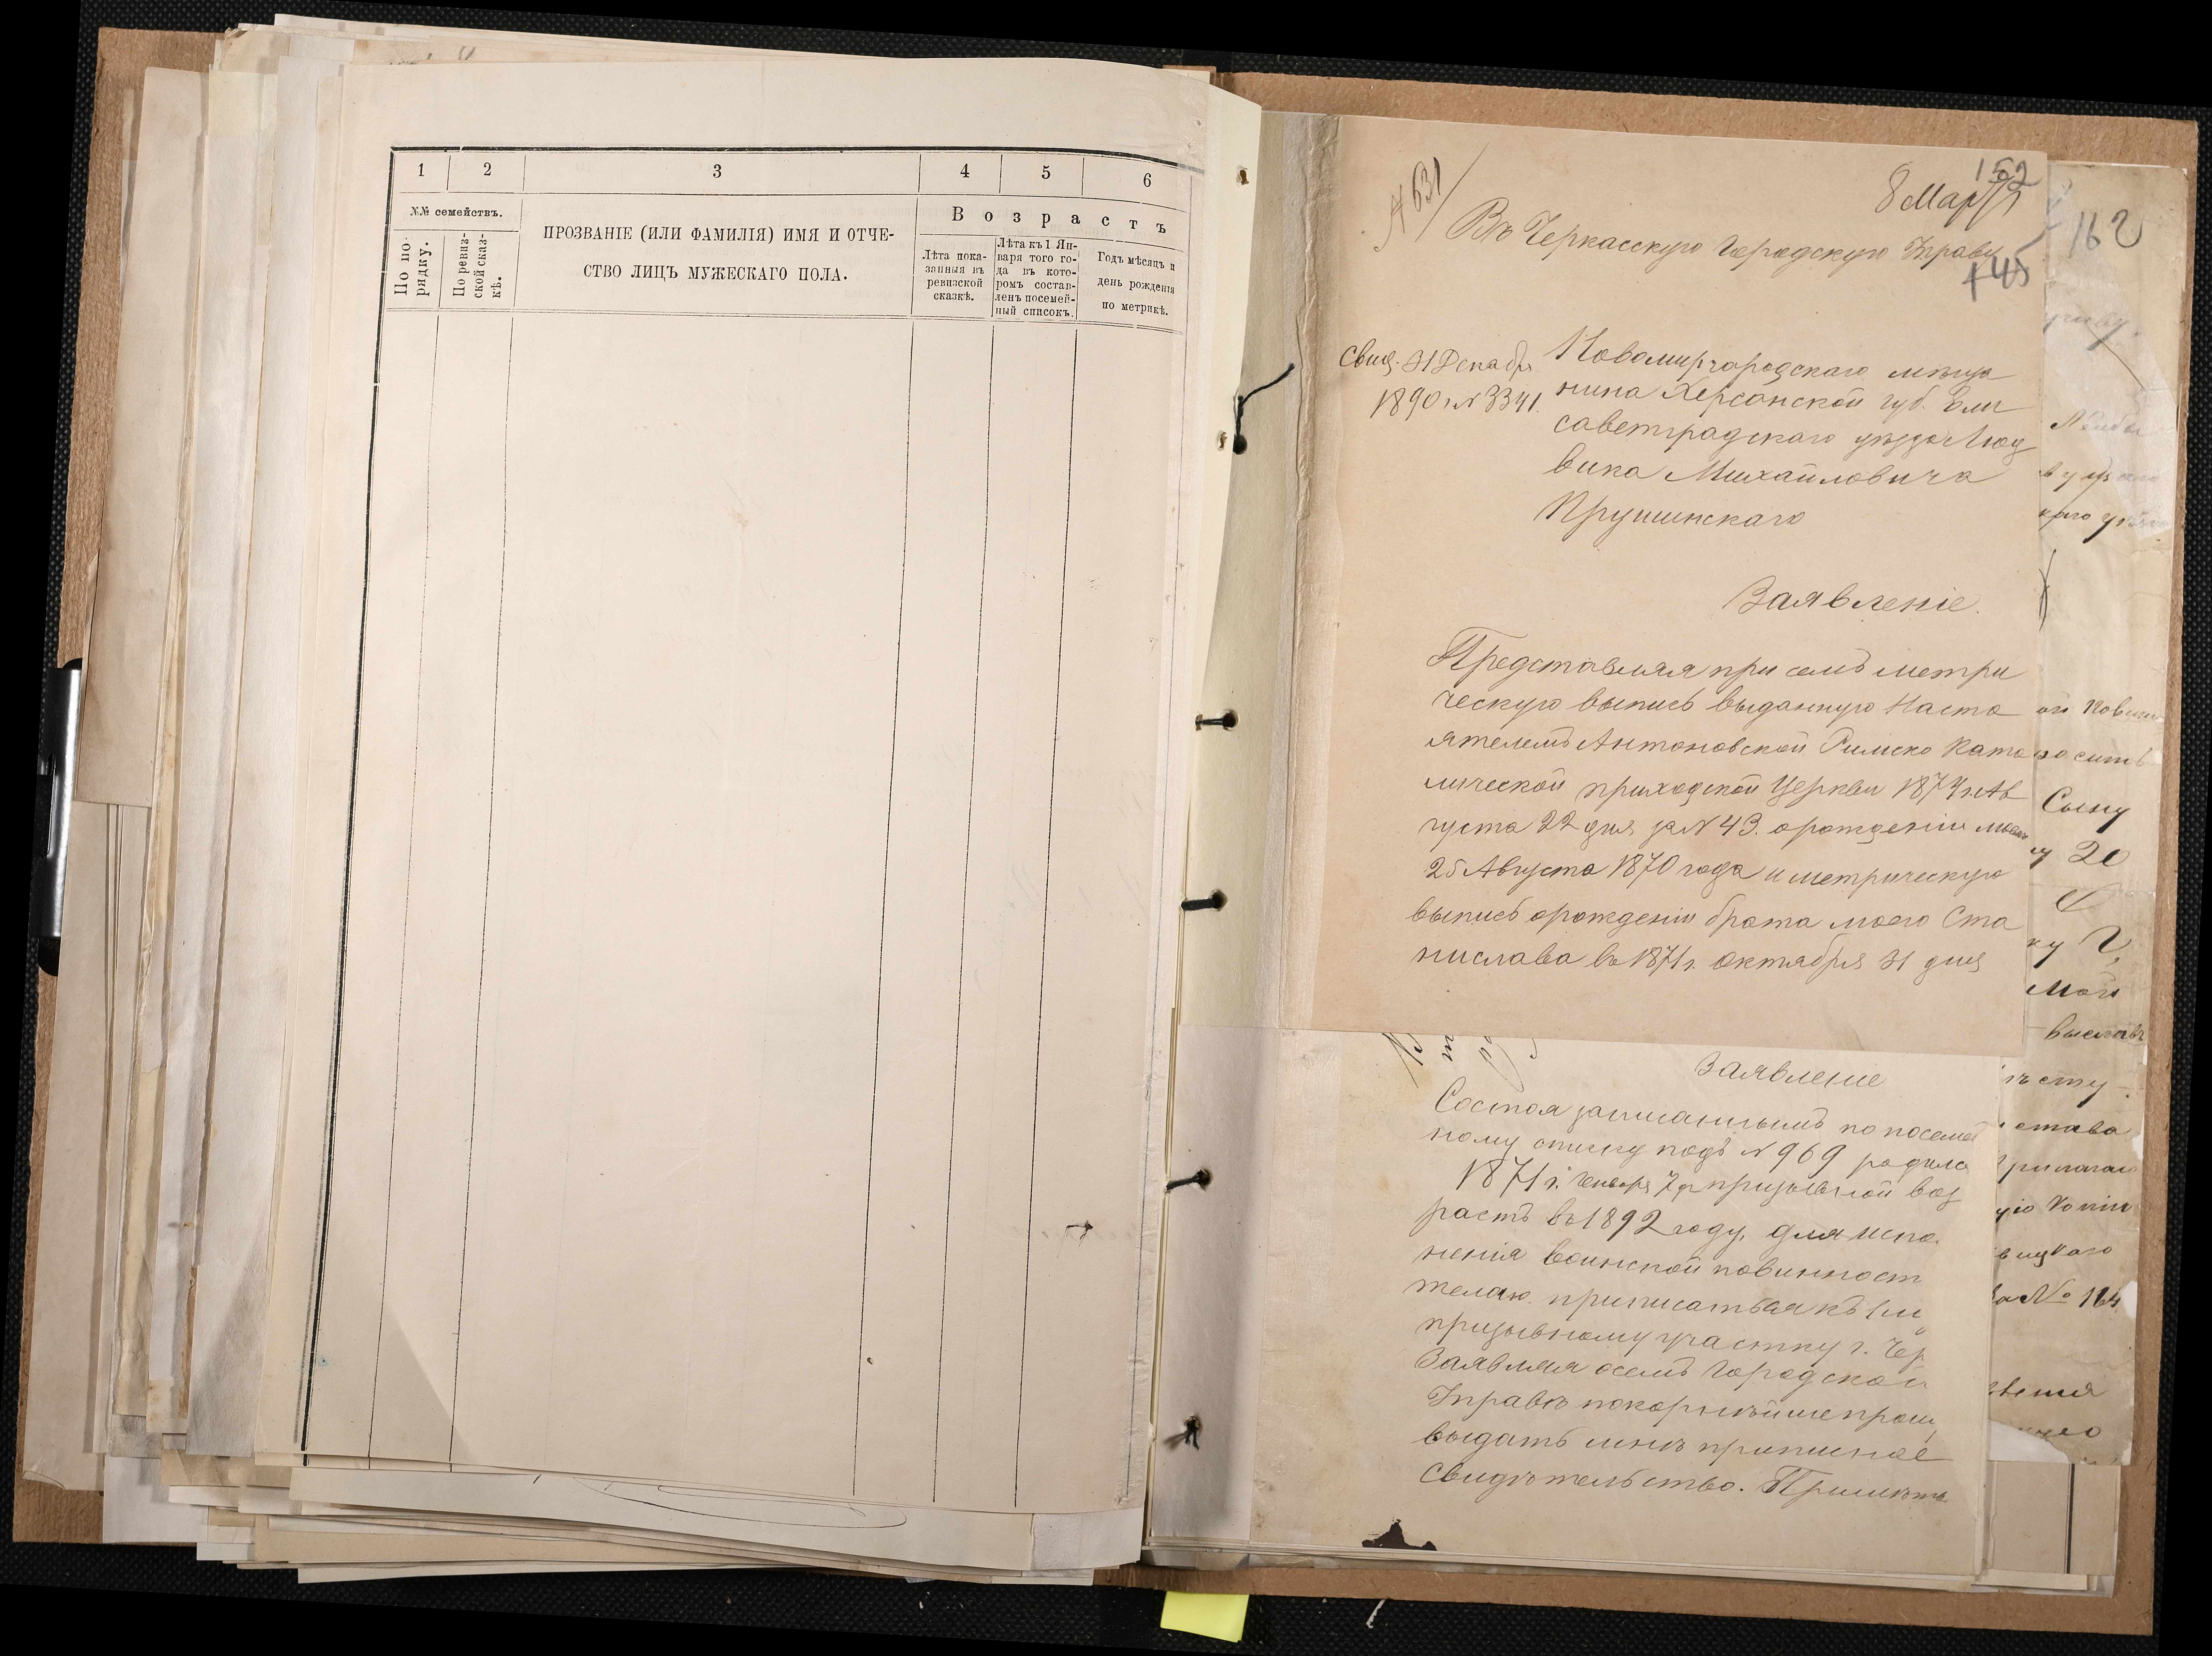 1
2
3
4
5
6
№№ семействъ.
По по-
рядку.
По ревиз-
ской сказ-
кѣ.
ПРОЗВАНІЕ (ИЛИ ФАМИЛІЯ) ИМЯ И ОТЧЕ-
СТВО ЛИЦЪ МУЖЕСКАГО ПОЛА.
Возрастъ
Лѣта пока-
занныя въ
ревизской
сказкѣ.
Лѣта къ 1 Ян-
варя того го-
да въ кото-
ромъ состав-
ленъ посемей-
ный списокъ.
Годъ мѣсяцъ и
день рожденія
по метрикѣ.
152
8 Мар
631
Въ Черкасскую Городскую Управу
145
Свид. 31 Декабря
1890 г № 3341.
Новомиргородскаго мѣща
нина Херсонской губ. Ели
саветградскаго уѣзда Люд
вика Михайловича
Прушинскаго
Заявленіе.
Представляя при семъ метри
ческую выпись выданную Насто
ятелемъ Антоновской Римско Като
лической приходской Церкви 1874 г. Ав
густа 22 дня за № 43. о рожденіи моемъ
25 Августа 1870 года и метрическую
выпись о рожденіи брата моего Ста
нислава въ 1871 г. Октября 31 дня
Заявление
Состоя записаннымъ по посемей
ному списку подъ № 969 родился
1871 г. Января 7 д призывной воз
растъ въ 1892 году, для испо
ненія воинской повинност
желаю приписаться къ 1 му
призывному участку г. Чер
Заявляя о семъ Городской
Управѣ покорнѣйше прошу
выдать мнѣ приписное
свидѣтельство. Примѣты
162
Сыну
20
Мой
выслать
ства
За № 164